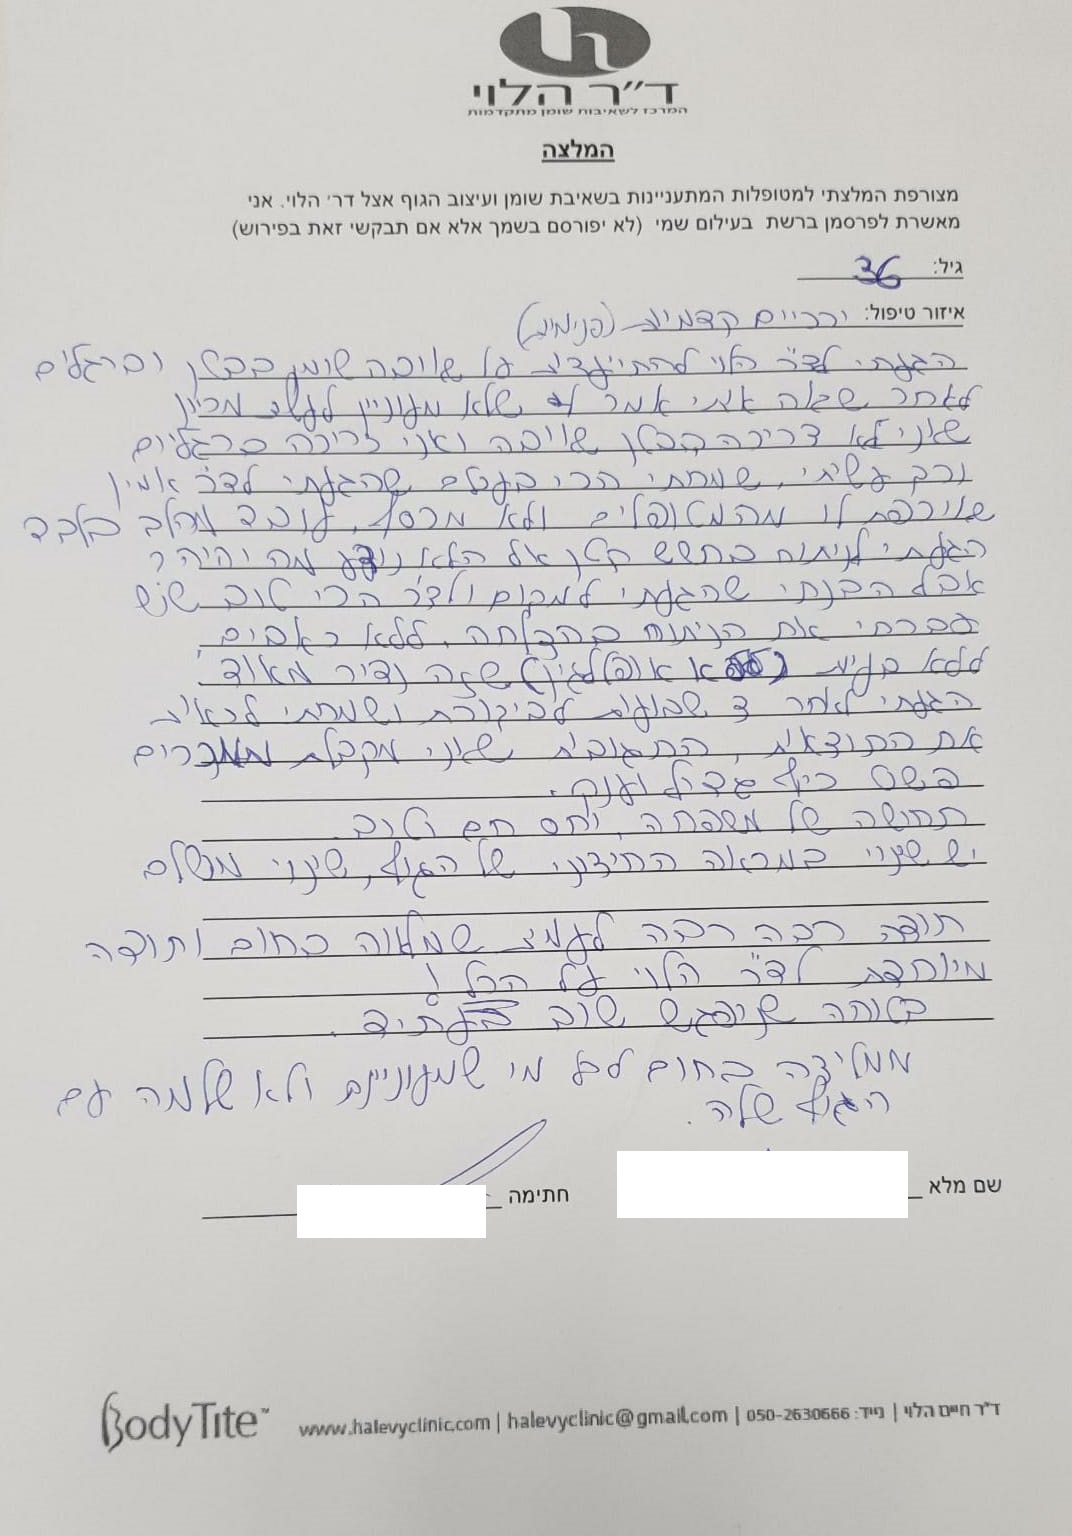 ד״ר הלוי
המרכז לשאיבות שומן מתקדמות
המלצה
מצורפת המלצתי למטופלות המתעניינות בשאיבת שומן ועיצוב הגוף אצל דר׳ הלוי. אני
מאשרת לפרסמן ברשת בעילום שמי (לא יפורסם בשמך אלא אם תבקשי זאת בפירוש)
גיל: 36
איזור טיפול: ירכיים קדמיות (פנימית)
הגעתי לד״ר הלוי להתייעצות על שאיבה שומן בבטן וברגליים
לאחר שראה אותי אמר לי שלא מעוניין לעשות מכיוון
שאני לא צריכה בבטן שאיבה ואני צריכה ברגליים
וכך עשיתי, שמחתי הכי בעולם שהגעתי לד״ר אמין
שאיכפת לו מהמטופלים ולא מכסף, עובד מהלב בלבד
הגעתי לניתוח בחשש קטן אל הלא נודע מה יהיה ?
אבל הבנתי שהגעתי למקום ולד״ר הכי טוב שיש
עברתי את הניתוח בהצלחה, ללא כאבים
ללא בעיות (או אופטלגין) שזה נדיר מאוד.
הגעתי לאחר 3 שבועות לביקורת ושמחתי לראות
את התוצאות, התגובות שאני מקבלת מחברים
פשוט כיף גדול וענק.
תחושה של משפחה, יחס חם וטוב.
יש שינוי במראה החיצוני של הגוף, שינוי מושלם
תודה רבה רבה שמלווה בחום ותודה
מיוחדת לד״ר הלוי על הכל !
בטוחה שניפגש שוב בעתיד.
ממליצה בחום לכל מי שמעוניינת ולא שלמה עם
הגוף שלה.
שם מלא
חתימה
BodyTite™
www.halevyclinic.com | halevyclinic@gmail.com | ד״ר חיים הלוי | נייד: 050-2630666